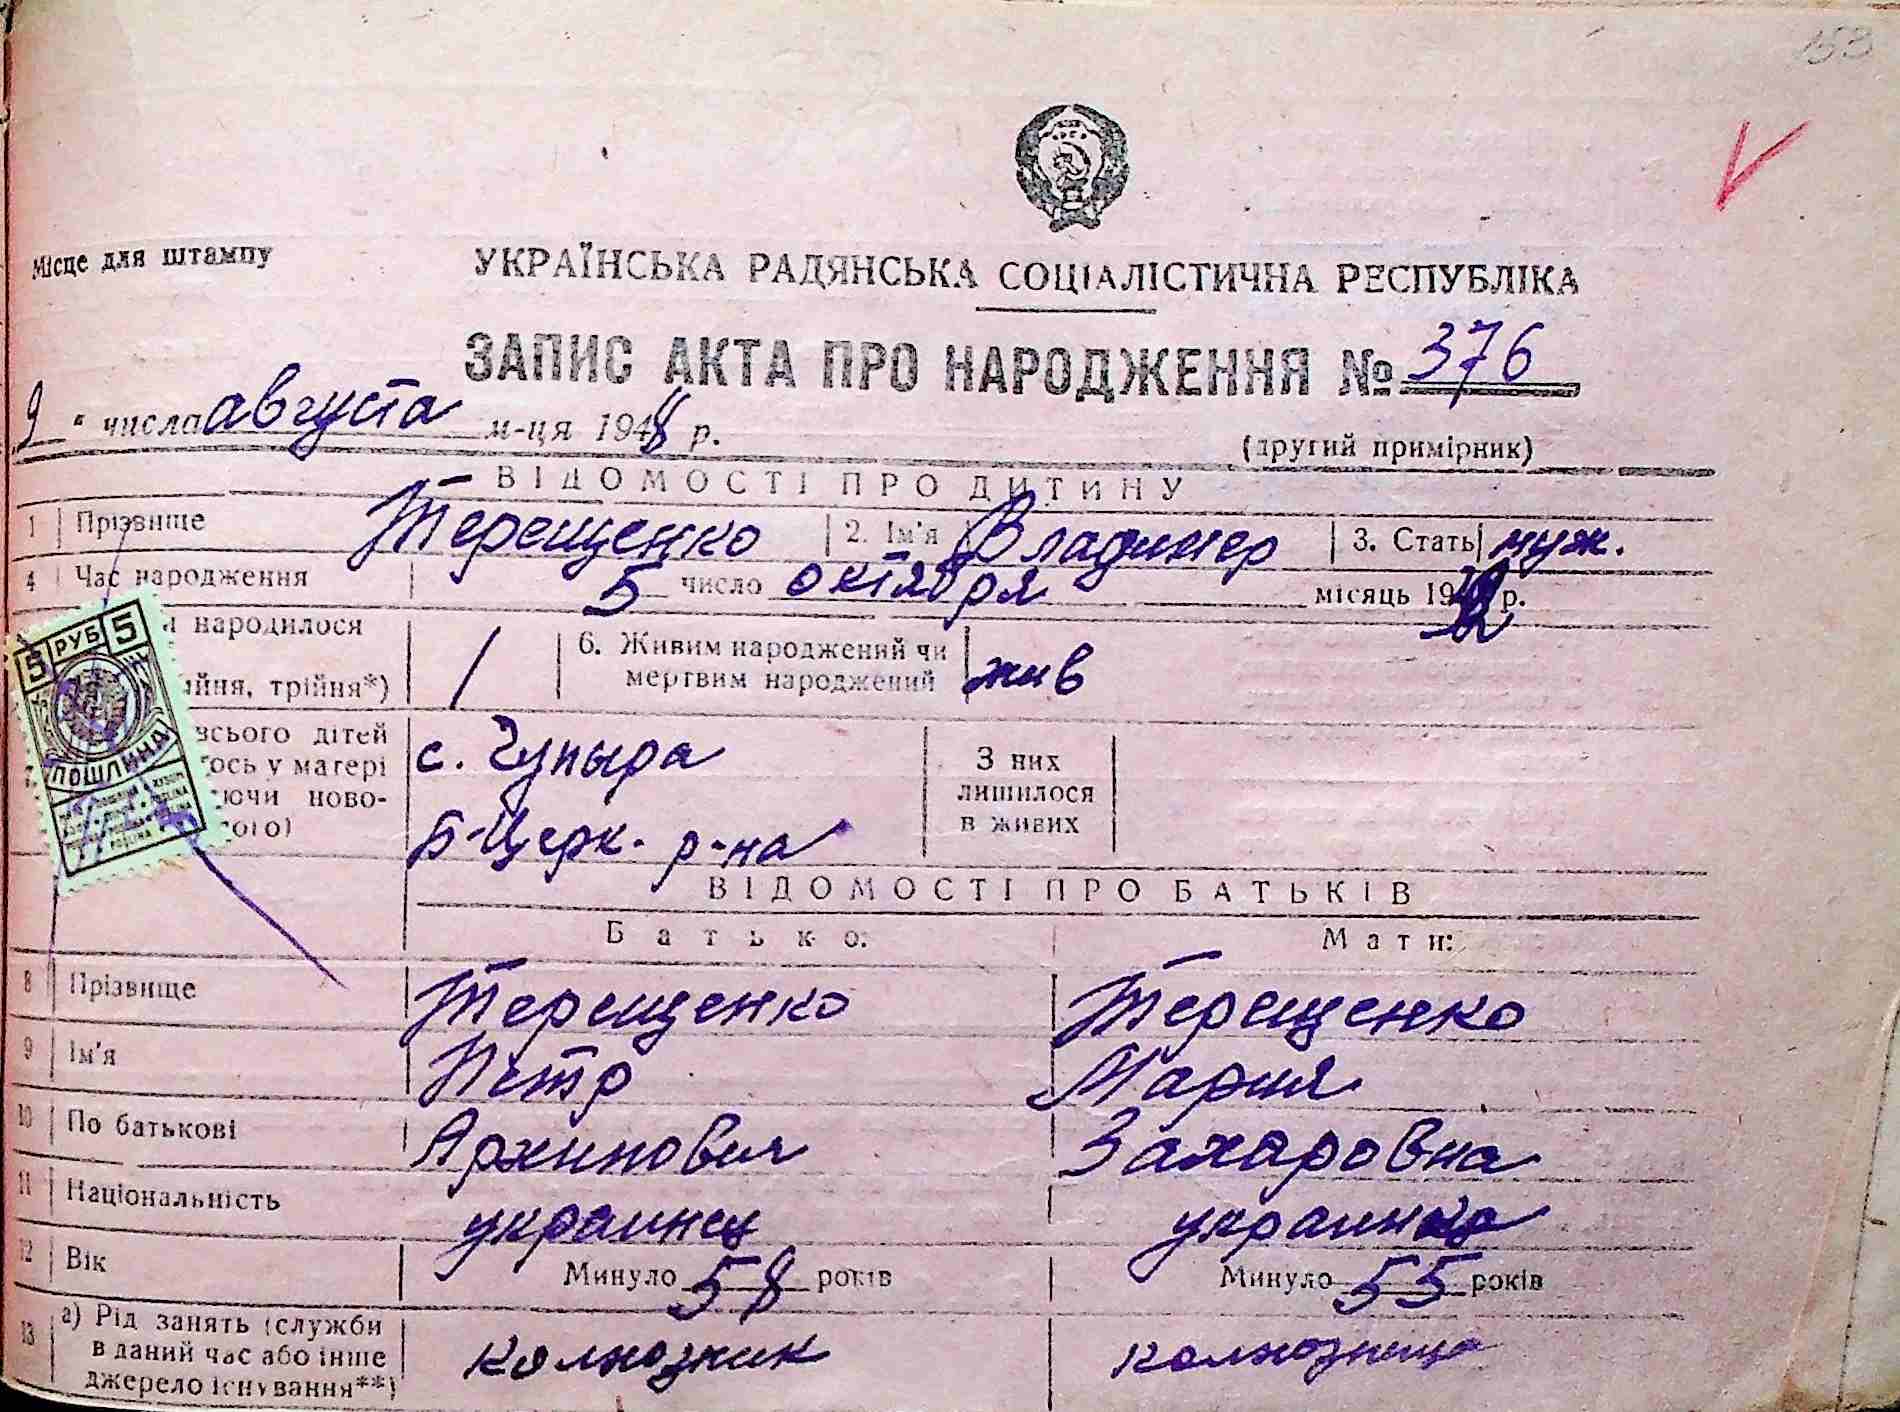 153
Місце для штампу
УКРАЇНСЬКА РАДЯНСЬКА СОЦІАЛІСТИЧНА РЕСПУБЛІКА
ЗАПИС АКТА ПРО НАРОДЖЕННЯ № 376
9 " числа августа м-ця 1948 р.
(другий примірник)
ВІДОМОСТІ ПРО ДИТИНУ
1 Прізвище Терещенко 2. Ім'я Владимер 3. Стать муж.
4 Час народження 5 число октября місяць 19 р.
народилося
6. Живим народжений чи
йня, трійня*) / мертвим народжений жив
5 РУБ 5
ПОШЛИНА
всього дітей с. Чупыра З них
ось у матері лишилося
ючи ново- в живих
ого) Б-Церк. р-на
ВІДОМОСТІ ПРО БАТЬКІВ
Батько: Мати:
8 Прізвище Терещенко Терещенко
9 Ім'я Петр Мария
10 По батькові Архипович Захаровна
11 Національність украинец украинка
12 Вік Минуло 58 років Минуло 55 років
13 а) Рід занять (служби
в даний час або інше колхозник колхозница
джерело існування**)